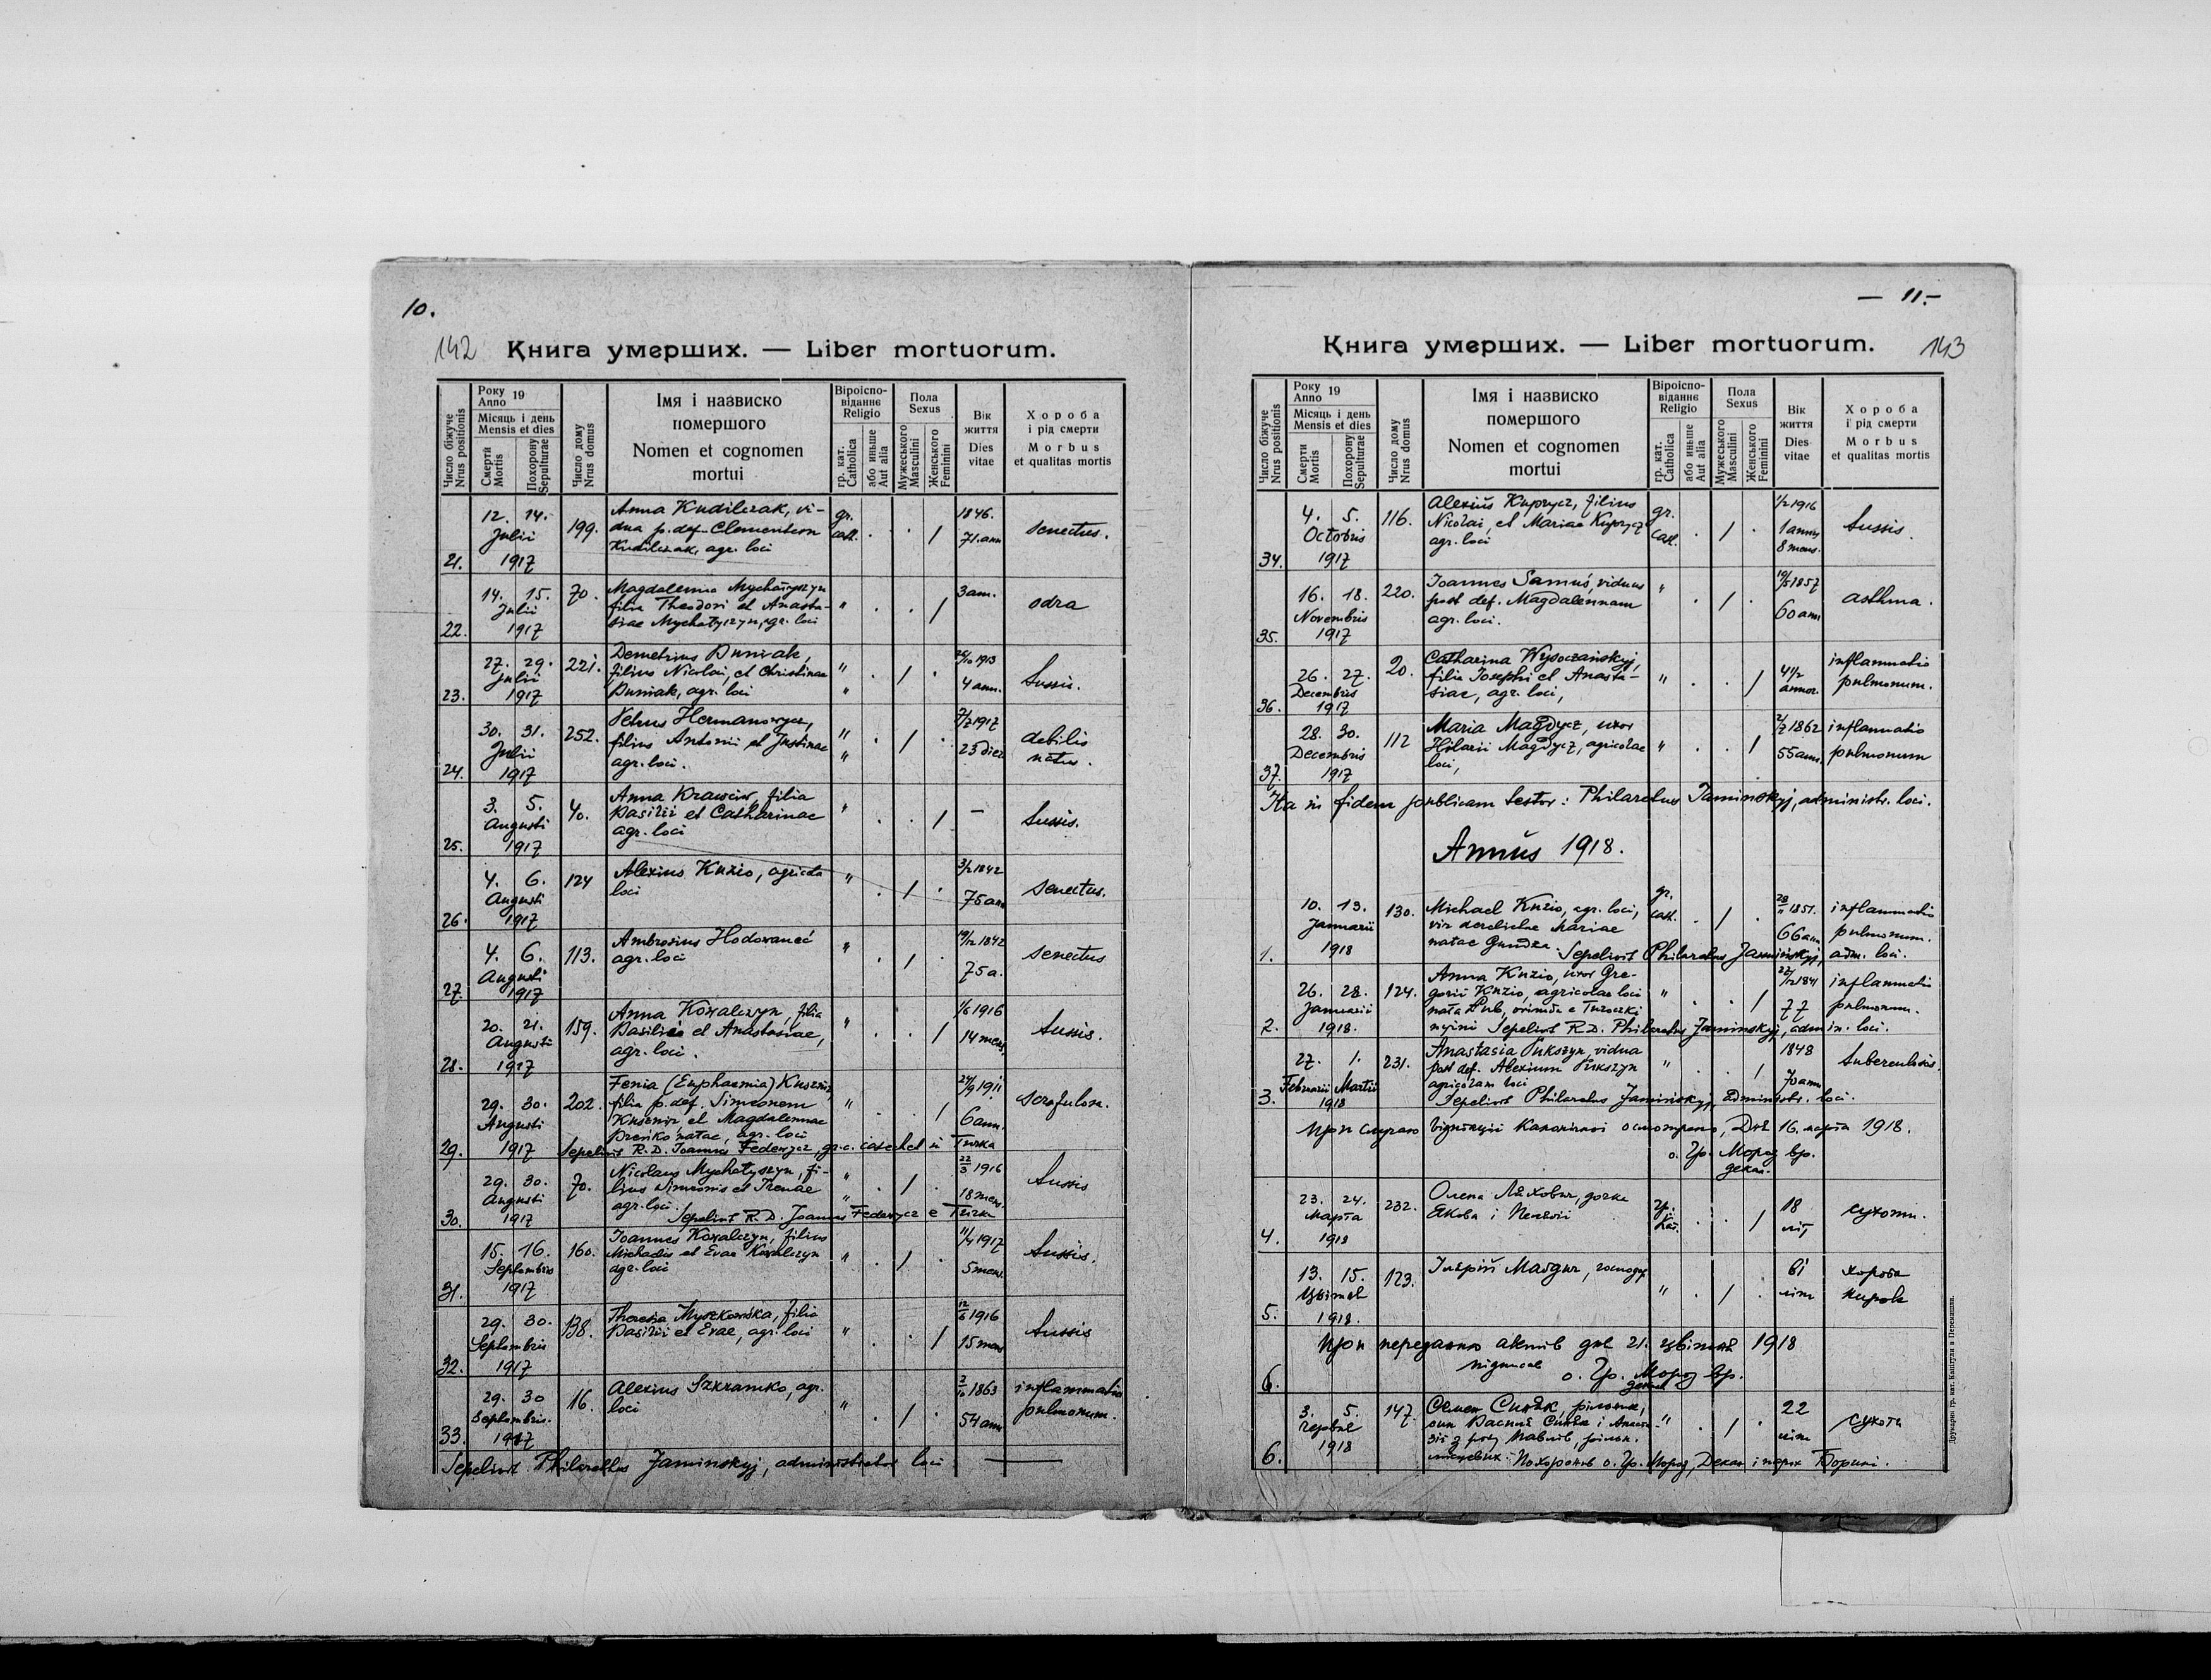 10.
142 Книга умерших. — Liber mortuorum.
Число біжуче Nrus positionis
Року Anno 19
Місяць і день Mensis et dies
Смерти Mortis
Похорону Sepulturae
Число дому Nrus domus
Імя і назвиско помершого
Nomen et cognomen mortui
Віроіспо-віданнє Religio
гр. кат. Catholica
або иньше Aut alia
Пола Sexus
Мужеського Masculini
Женського Feminini
Вік життя Dies vitae
Хороба і рід смерти
Morbus et qualitas mortis
21. 12. 14. Julii 1917 199. Anna Kudilczak, vi-
dua p. def. Clementem
Kudilczak, agr. loci
gr. cath. . . / 1846. 71. ann senectus.
22. 14. 15. Julii 1917 70. Magdalenna
filia Theodori et Anasta-
siae agr. loci
" . . / 3 ann. odra
23. 27. 29. Julii 1917 221. Demetrius Duniak,
filius Nicolai, et Christinae
Duniak, agr. loci
" . / . 1913 4 ann. tussis.
24. 30. 31. Julii 1917 252. Petrus Hermanowycz,
filius Antonii et Justinae
agr. loci.
" . / . 1917 23 dies debilis natus.
25. 3. 5. Augusti 1917 40. Anna Krawciw, filia
Basilii et Catharinae
agr. loci
" . . / — tussis.
26. 4. 6. Augusti 1917 124 Alexius Kuzio, agricola
loci
" . / . 3/2 1842 75 ann senectus.
27. 4. 6. Augusti 1917 113. Ambrosius Hodovaneć
agr. loci
" . / . 19/12 1842 75 a. senectus
28. 20. 21. Augusti 1917 159. Anna Kowalczyn, filia
Basilii et Anastasiae,
agr. loci.
" . . / 1/6 1916 14 mens. tussis.
29. 29. 30. Augusti 1917 202. Fenia (Euphaemia)
filia p. def. Simeonem
et Magdalennae
natae, agr. loci
" . . / 24/9 1911 6 ann. scrofulosa.
Sepelivit R. D. Joannes Federycz, gr. c. catechet in Turka
30. 29. 30. Augusti 1917 70. Nicolaus Mychatyszyn, fi-
lius Simeonis et Irenae
agr. loci.
" . / . 22/3 1916 18 mens. tussis
Sepelivit R. D. Joannes Federycz e Turka
31. 15. 16. Septembris 1917 160. Joannes Kowalczyn, filius
Michaelis et Evae Kowalczyn
agr. loci
" . / . 11/4 1917 5 mens. tussis.
32. 29. 30. Septembris 1917 138. Theresia Myszkowska, filia
Basilii et Evae, agr. loci
" . . / 12/6 1916 15 mens tussis
33. 29. 30 Septembris. 1917 16. Alexius agr.
loci
" . / . 1863 54 ann inflammatio pulmonum.
Sepelivit Philarethus Jaminskyj, administrator loci
— 11. —
Книга умерших. — Liber mortuorum. 143
Число біжуче Nrus positionis
Року Anno 19
Місяць і день Mensis et dies
Смерти Mortis
Похорону Sepulturae
Число дому Nrus domus
Імя і назвиско помершого
Nomen et cognomen mortui
Віроіспо-віданнє Religio
гр. кат. Catholica
або иньше Aut alia
Пола Sexus
Мужеського Masculini
Женського Feminini
Вік життя Dies vitae
Хороба і рід смерти
Morbus et qualitas mortis
34. 4. 5. Octobris 1917 116. Alexius Kuprycz, filius
Nicolai, et Mariae Kuprycz
agr. loci
gr. cath. . / . 1/2 1916 1 annus 8 mens. tussis.
35. 16. 18. Novembris 1917 220. Joannes Samuś, viduus
post def. Magdalennam
agr. loci.
" . / . 19/5 1857 60 ann asthma.
36. 26. 27. Decembris 1917 20. Catharina Wysoczańskyj,
filia Josephi et Anasta-
siae, agr. loci,
" . . / 4 1/2 annor. inflammatio pulmonum.
37. 28. 30. Decembris 1917 112 Maria Magdycz, uxor
Hilarii Magdycz, agricolae
loci,
" . . / 1862 55 ann. inflammatio pulmonum
Ita in fidem publicam testor: Philaretus Jaminskyj, administr. loci.
Annus 1918.
1. 10. 13. Januarii 1918 130. Michael Kuzio, agr. loci,
vir derelictae Mariae
natae Gundza.
gr. cath. . / . 28/11 1851. 66 ann inflammatio pulmonum.
Sepelivit Philaretus Jaminskyj, adm. loci.
2. 26. 28. Januarii 1918. 124. Anna Kuzio, uxor Gre-
gorii Kuzio, agricolae loci
nata Dub, oriunda e Turoczki
" . . / 22/12 1841 77 inflammatio pulmonum.
Sepelivit R. D. Philaretus Jaminskyj, admin. loci.
3. 27. Februarii 1. Martii 1918 231. Anastasia Pukszyn, vidua
post def. Alexium Pukszyn
agricolam loci
" . . / 1848 70 ann tuberculosis.
Sepelivit Philaretus Jaminskyj, administr. loci.
При канонічної Дня 16. марта 1918.
о. Гр. Мороз вр.
декан.
4. 23. 24. Марта 1918 232. Олена Ляхович, дочка
Якова і Пелагії
гр. кат. . . / 18 літ сухоти.
5. 13. 15. Цвітня 1918. 123. Ілярій Магдич, господар
" . / . 61 літ хороба нирок
6. При переданю актів дня 21. цвітня 1918
підписав о. Гр. Мороз вр.
декан
6. 3. 5. Червня 1918 147. Семен Синяк, рільник,
син Василя Синяка і Анаста-
зії з роду Павлів, рільн.
місцевих.
" . / . 22 літ сухоти
Похоронив о. Гр. Мороз, Декан і парох Борині.
Друкарня гр. кат. Капітули в Перемишли.